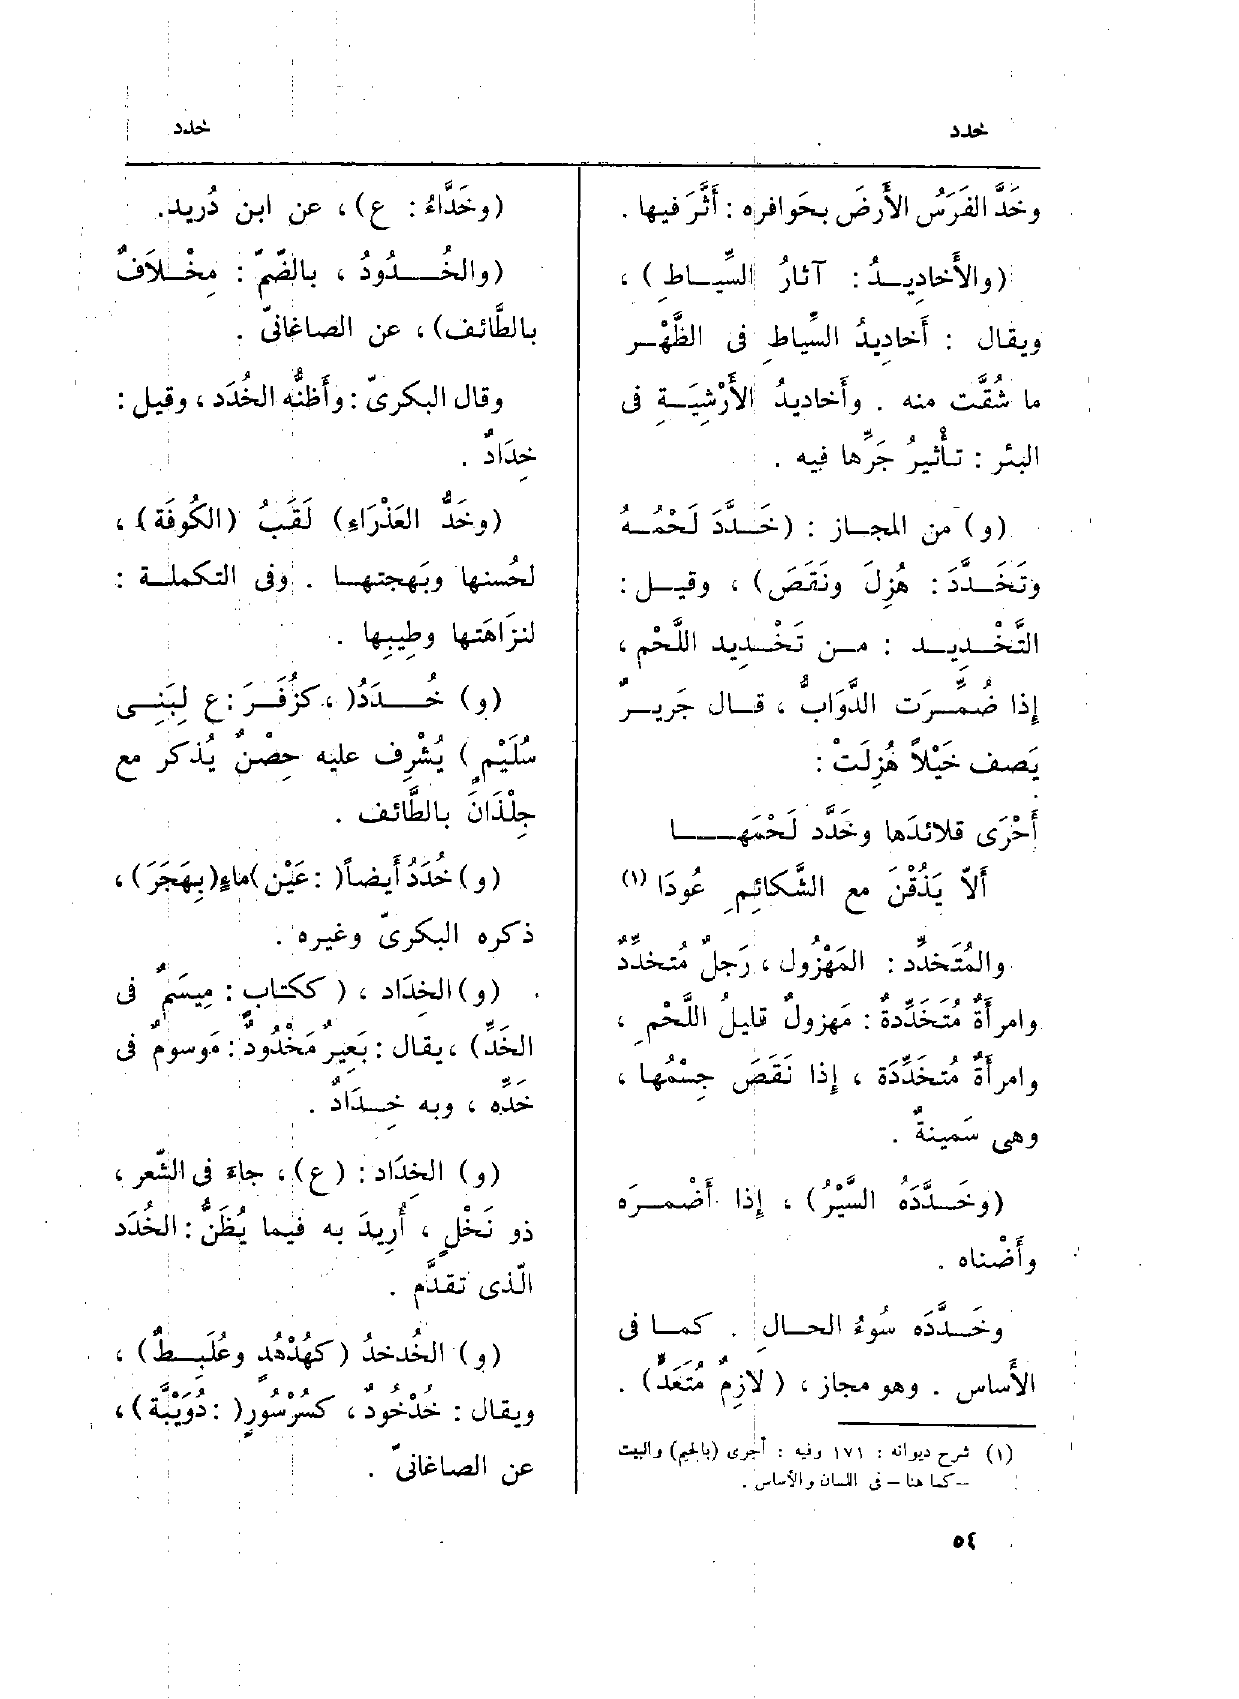 خدد
خدد
وخَدَّ الفَرَسُ الأَرضَ بحَوافره : أَثَّرَ فيها .
(والأَخادِيــدُ : آثارُ السِّيــاطِ ) ،
ويقال : أَخاديدُ السِّياطِ فى الظَّهْـر
ما شُقَّت منه . وأَخاديدُ الأَرْشِيَــةِ فى
البئر : تأْثيرُ جَرِّها فيه .
(و) من المجـاز : (خَــدَّدَ لَحْمُــهُ
وتَخَــدَّدَ : هُزِلَ ونَقَصَ) ، وقيــل :
التَّخْــدِيــد : مــن تَخْــدِيد اللَّحْمِ ،
إِذا ضُمِّــرَت الدَّوَابُّ ، قــال جَريــرٌ
يَصف خَيْلاً هُزِلَتْ :
أَخْرَى قلائدَها وخَدَّد لَحْمَهــــا
أَلاَّ يَذُقْنَ مع الشَّكائِمِ عُودَا (١)
والمُتَخدِّد : المَهْزُول ، رَجلٌ مُتخدِّدٌ
وامرأَةٌ مُتَخَدِّدةٌ : مَهزولٌ قليلُ اللَّحْمِ ،
وامرأَةٌ مُتخَدِّدَة ، إِذا نَقَصَ جِسْمُها ،
وهى سَمينةٌ .
(وخَــدَّدَهُ السَّيْرُ) ، إِذا أَضْمــرَه
وأَضْناه .
وخَــدَّدَه سُوءُ الحــالِ . كمــا فى
الأَساس . وهو مجاز ، ( لازِمٌ مُتَعَدٍّ) .
(١) شرح ديوانه : ١٧١ وفيه : أجرى (بالجيم) والبيت
–كما هنا – فى اللسان والأساس .
(وخَدَّاءُ : ع) ، عن ابن دُريد.
(والخُــــدُودُ ، بالضّمّ : مِخْــلاَفٌ
بالطَّائف) ، عن الصاغانىّ .
وقال البكرىّ : وأَظنُّه الخُدَد ، وقيل :
خِدَادٌ .
(وخَدُّ العَذْرَاءِ) لَقَبُ (الكُوفَة) ،
لحُسنها وبَهجتهــا . وفى التكملــة :
لنزَاهَتها وطِيبِها .
(و) خُــــدَدُ( ، كزُفَــرَ : ع لِبَنِــى
سُلَيْمٍ ) يُشْرِف عليه حِصْنٌ يُذكر مع
جِلْذَانَ بالطَّائف .
(و) خُدَدُ أَيضاً( : عَيْن) ماءٍ(بِهَجَرَ) ،
ذكره البكرىّ وغيره .
(و) الخِدَاد ، ( ككتابٍ : مِيسَمٌ فى
الخَدِّ) ، يقال : بَعِيرٌ مَخْدُودٌ : مَوسومٌ فى
خَدّه ، وبه خِــدَادٌ .
(و) الخِدَاد : (ع) ، جاءَ فى الشّعر ،
ذو نَخْلٍ ، أُرِيدَ به فيما يُظَنُّ : الخُدَد
الّذى تقدَّم .
(و) الخُدخدُ (كهُدْهُدٍ وعُلَبِــطٌ) ،
ويقال : خُدْخُودٌ ، كسُرْسُورٍ( : دُوَيْبَّة) ،
عن الصاغانىّ .
٥٤